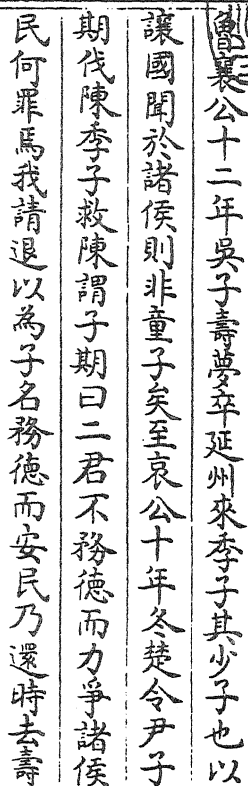 魯襄公十二年吳子壽夢卒延州來季子其少子也以
讓國聞於諸侯則非童子矣至哀公十年冬楚令尹子
期伐陳季子救陳謂子期曰二君不務德而力爭諸侯
民何罪焉我請退以為子名務德而安民乃還時去壽